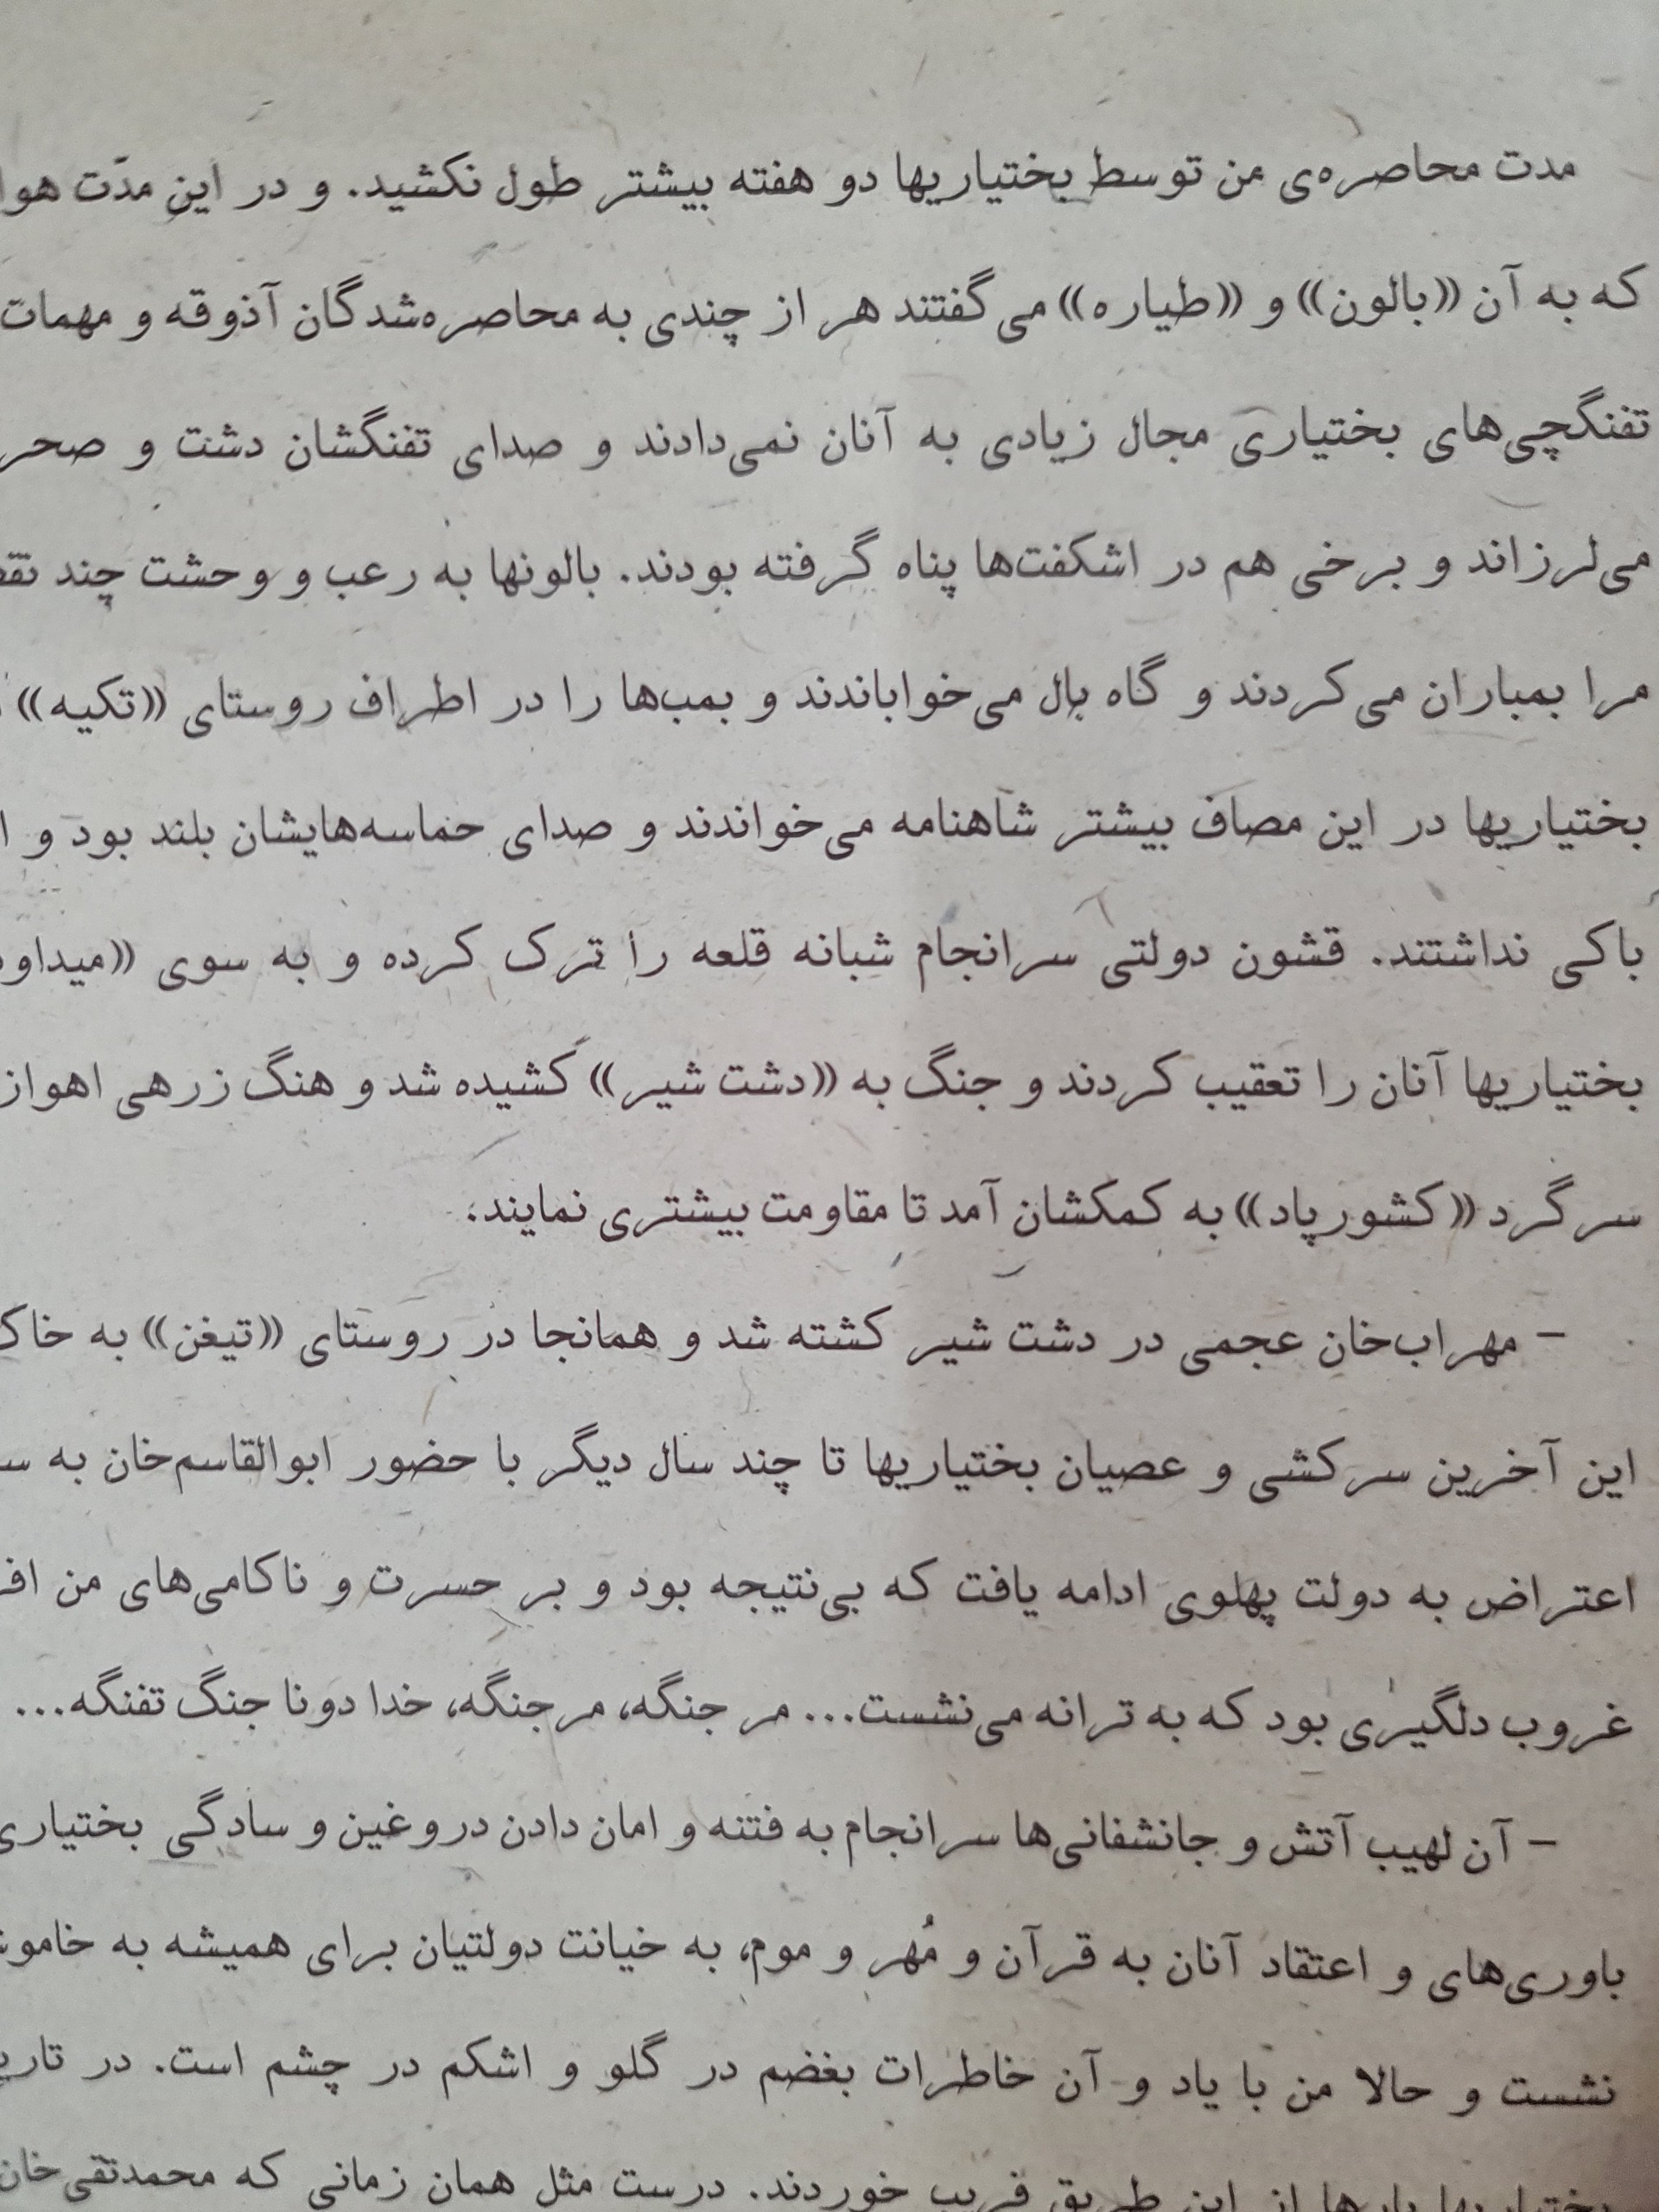 مدت محاصره‌ی من توسط بختیاریها دو هفته بیشتر طول نکشید. و در این مدّت هوا
که به آن «بالون» و «طیاره» می‌گفتند هر از چندی به محاصره‌شدگان آذوقه و مهمات
تفنگچی‌های بختیاری مجال زیادی به آنان نمی‌دادند و صدای تفنگشان دشت و صحر
می‌لرزاند و برخی هم در اشکفت‌ها پناه گرفته بودند. بالونها به رعب و وحشت چند
مرا بمباران می‌کردند و گاه بال می‌خواباندند و بمب‌ها را در اطراف روستای «تکیه»
بختیاریها در این مصاف بیشتر شاهنامه می‌خواندند و صدای حماسه‌هایشان بلند بود و ا
باکی نداشتند. قشون دولتی سرانجام شبانه قلعه را ترک کرده و به سوی «میداو
بختیاریها آنان را تعقیب کردند و جنگ به «دشت شیر» کشیده شد و هنگ زرهی اهواز
سرگرد «کشورپاد» به کمکشان آمد تا مقاومت بیشتری نمایند.
– مهراب‌خان عجمی در دشت شیر کشته شد و همانجا در روستای «تیغن» به خاک
این آخرین سرکشی و عصیان بختیاریها تا چند سال دیگر با حضور ابوالقاسم‌خان به س
اعتراض به دولت پهلوی ادامه یافت که بی‌نتیجه بود و بر حسرت و ناکامی‌های من افز
غروب دلگیری بود که به ترانه می‌نشست... مر جنگه، مرجنگه، خدا دونا جنگ تفنگه...
– آن لهیب آتش و جانشفانی‌ها سرانجام به فتنه و امان دادن دروغین و سادگی بختیاری
باوری‌های و اعتقاد آنان به قرآن و مُهر و موم، به خیانت دولتیان برای همیشه به خامو
نشست و حالا من با یاد و آن خاطرات بغضم در گلو و اشکم در چشم است. در تاری
بختیاریها بارها از این طریق فریب خوردند. درست مثل همان زمانی که محمدتقی‌خان